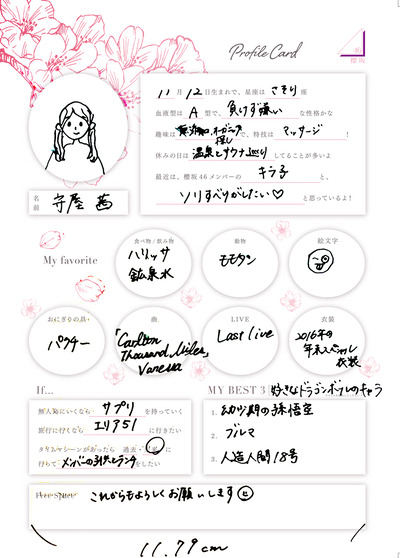 Profile Card
櫻坂
11月12日生まれで、星座はさそり座
血液型はA型で、負けず嫌いな性格かな
探し、特技はマッサージ!
休みの日は温泉とサウナ巡りしてることが多いよ
最近は、櫻坂46メンバーのキラ子と、
ソリすべりがしたい♡と思っているよ!
名前 守屋 茜
My favorite
食べ物/飲み物
ハリッサ
鉱泉水
動物
モモタン
絵文字
おにぎりの具
パクチー
曲
「Carlton
Thousand Miles,
Vanessa
LIVE
Last live
衣装
2016年の
年末スペシャル
衣装
If...
無人島にいくならサプリを持っていく
旅行に行くならエリア51に行きたい
タイムマシーンがあったら 過去・未来に
行ってメンバーの子供とランチをしたい
MY BEST 3 好きなドラゴンボールのキャラ
1. 幼少期の孫悟空
2. ブルマ
3. 人造人間18号
Free Space
これからもよろしくお願いします
11.79cm